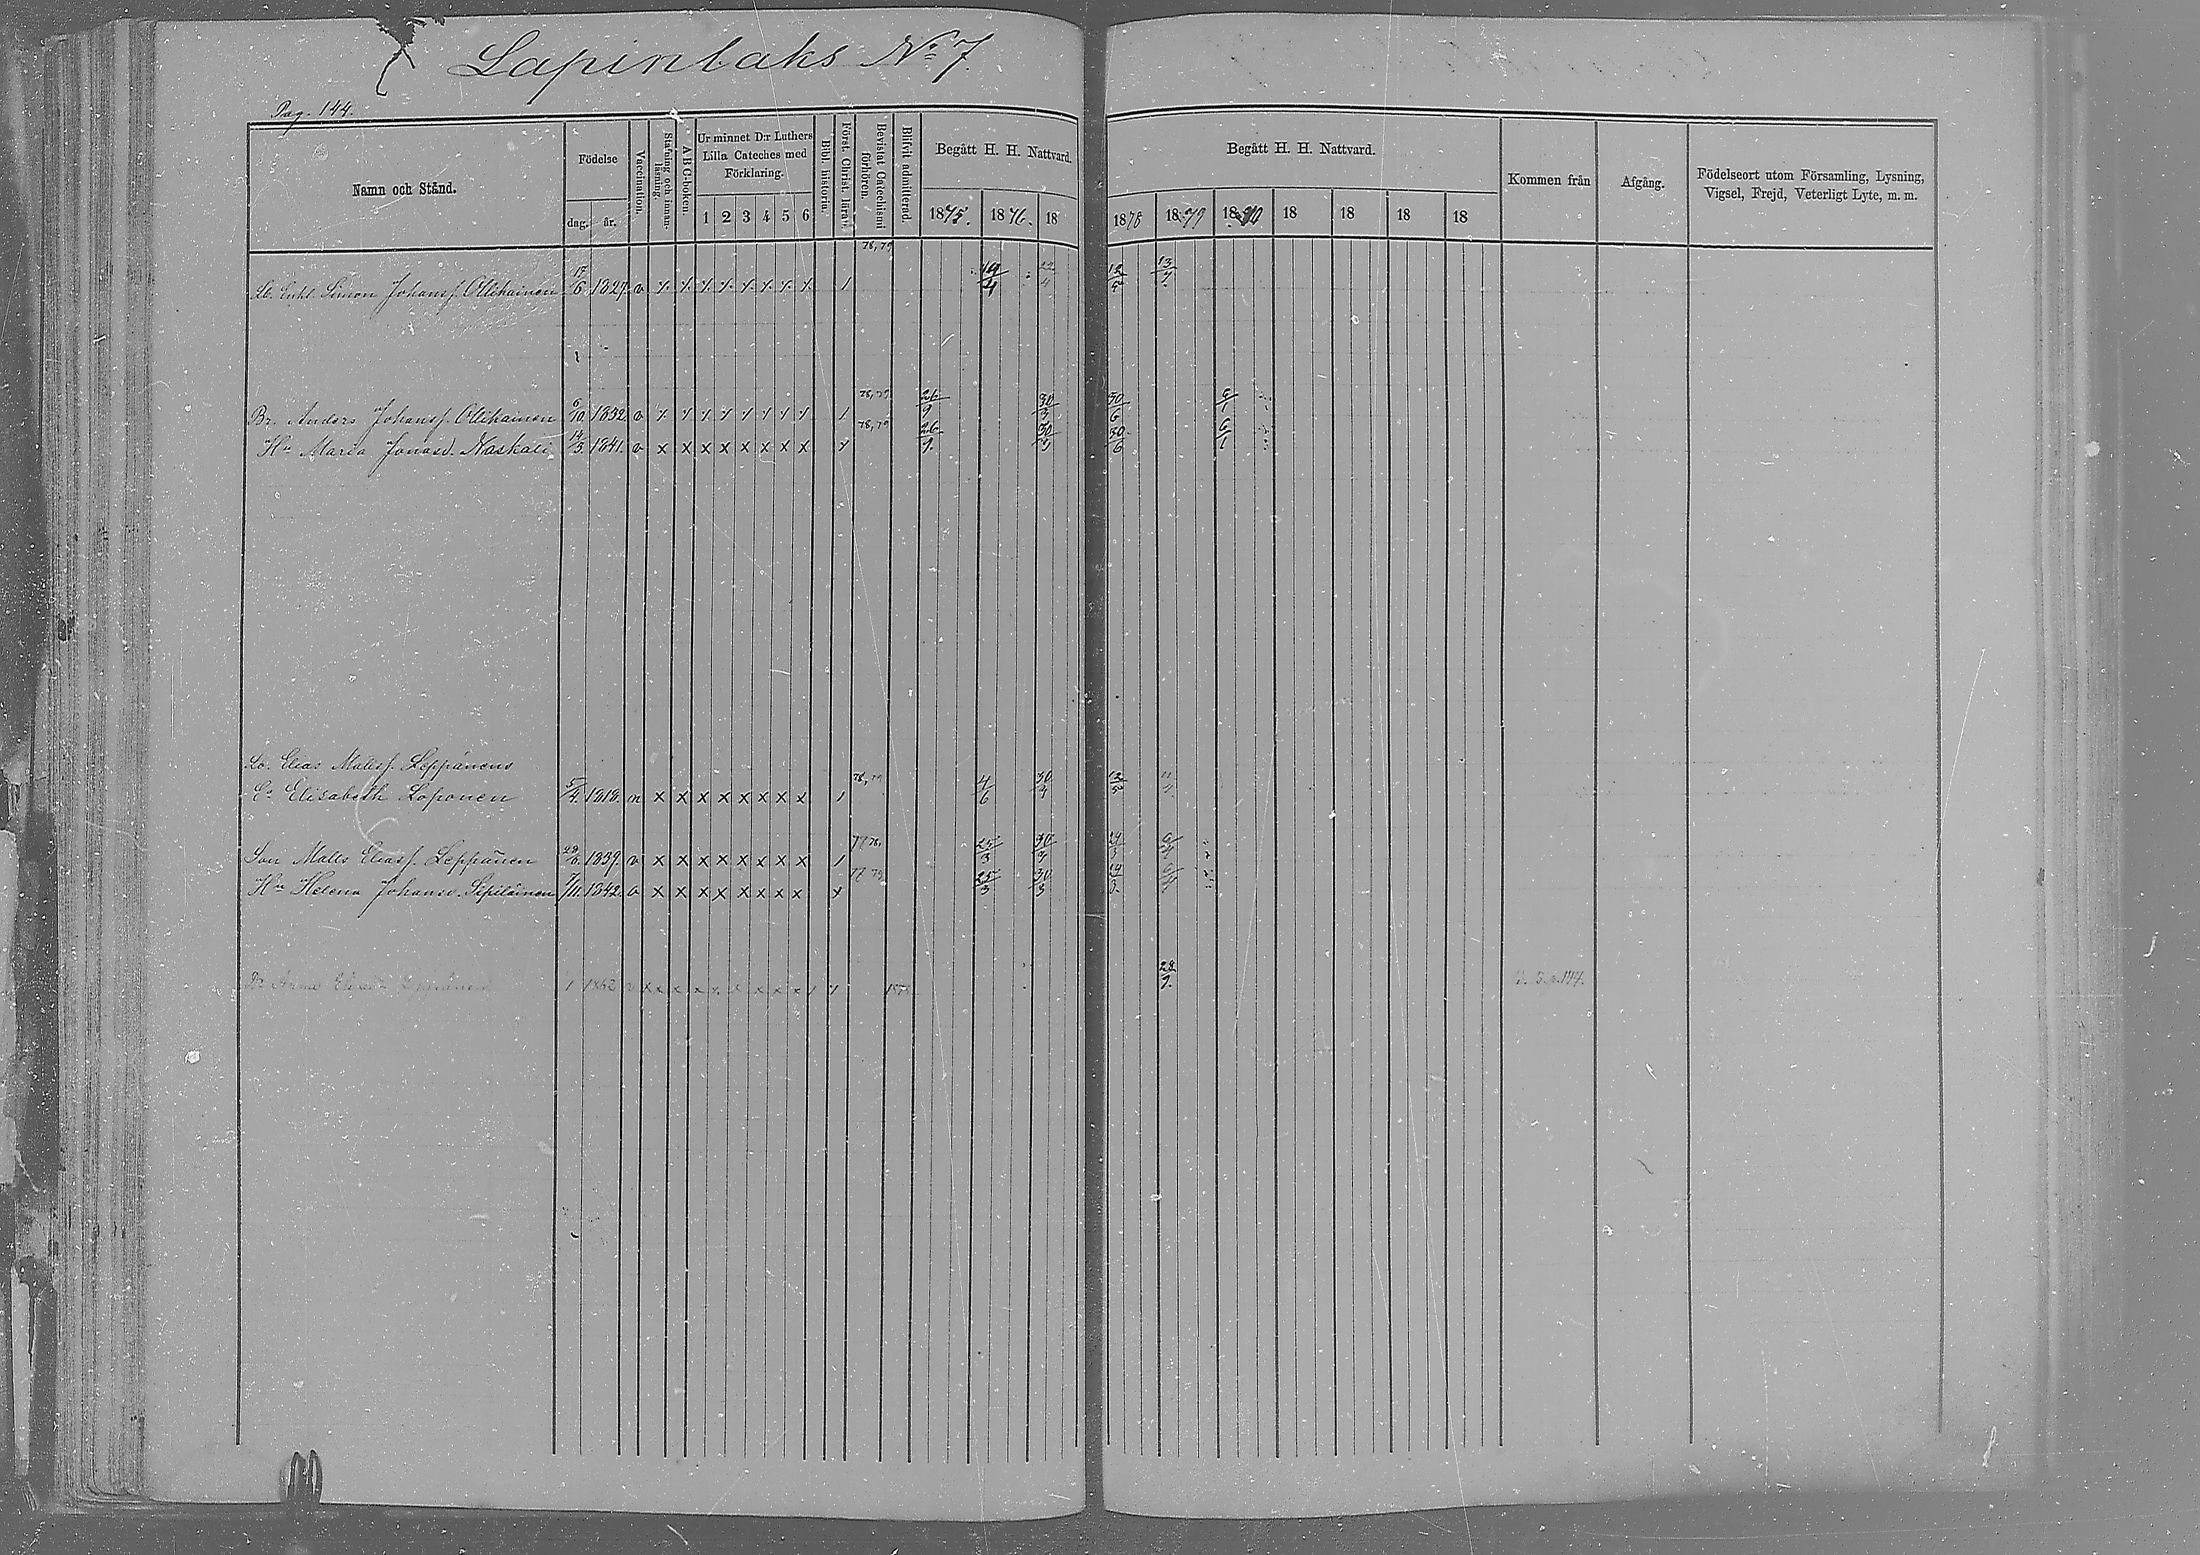 Lapinlaks No 7.
Pag. 144.
Namn och Stånd.
Födelse
dag. år.
Vaccination.
Stafning och innan-läsning.
A B C-boken.
Ur minnet D:r Luthers Lilla Cateches med Förklaring.
1 2 3 4 5 6
Bibl. historia.
Först. Christ. lära
Bevistat Catechismi förhören.
Blifvit admitterad.
Begått H. H. Nattvard.
1875. 1876. 18
Begått H. H. Nattvard.
1878 1879 1880 18 18 18 18
Kommen från
Afgång.
Födelseort utom Församling, Lysning, Vigsel, Frejd, Veterligt Lyte, m. m.
78, 79
Simon Johansf. Ollikainen 17/6 1827. v 19/4 12/5 13/7
78, 79
Br. Anders Johansf. Ollikainen 6/10 1832 v 26/9 30/3 30/6 6/1
78, 79
Hu Maria Jonasd. Naskali 14/3 1841. v x x x x x x x x 26/9. 30/3 30/6 6/1
Lo. Elias Matts f. Leppänens
78, 79
Ea Elisabeth Loponen 5/4. 1818. n x x x x x x x x 1 4/6 30/3 12/5
77 78,
Son Matts Eliasf. Leppänen 28/6. 1839. v x x x x x x x x 1 25/3 30/3 24/3 6/4
77 79
Hu Helena Johansd. Sipiläinen 7/11. 1842. v x x x x x x x x 25/3 30/3 24/3. 6/4
Dr Anna Eliasd. Leppänen 1 1862 v x x x x x x x x 28/9. p. 144.